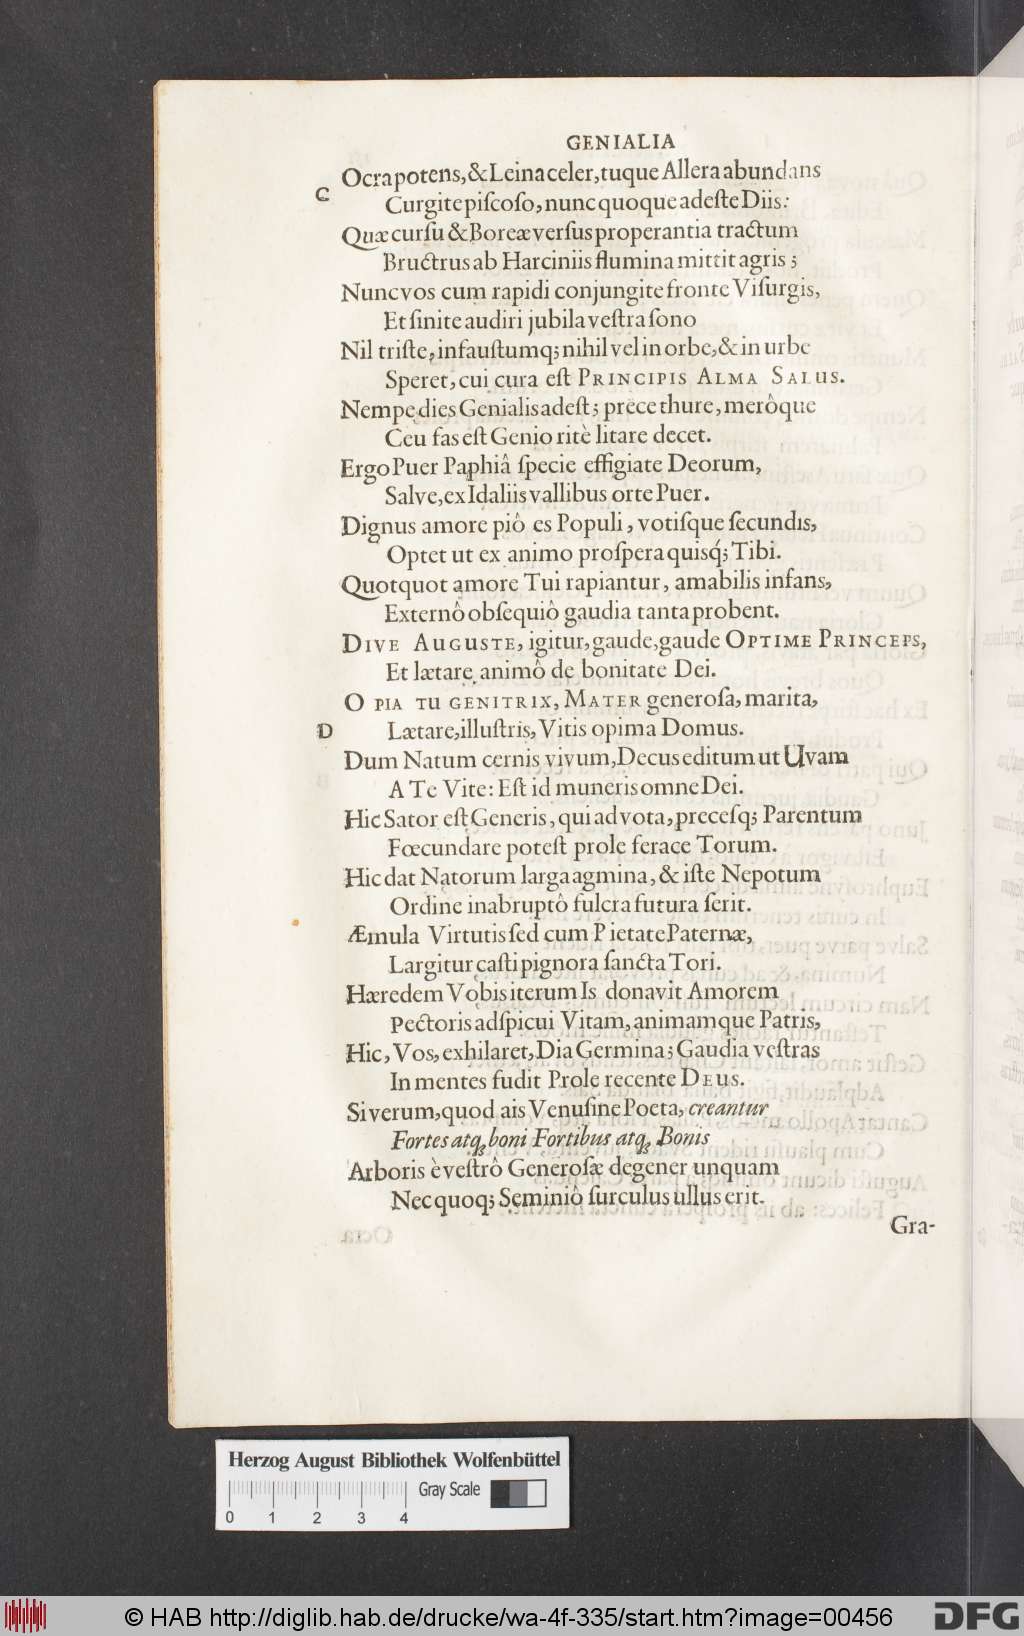 GENIALIA
Ocra potens, & Leina celer, tuque Allera abundans
C
Curgite piſcoſo, nunc quoque adeſte Diis:
Quæ curſu & Boreæ verſus properantia tractum
Bructrus ab Harciniis flumina mittit agris;
Nunc vos cum rapidi conjungite fronte Viſurgis,
Et ſinite audiri jubila veſtra ſono
Nil triſte, infauſtumq; nihil vel in orbe, & in urbe
Speret, cui cura eſt PRINCIPIS ALMA SALUS.
Nempe dies Genialis adeſt; prece thure, merôque
Ceu fas eſt Genio ritè litare decet.
Ergo Puer Paphiâ ſpecie effigiate Deorum,
Salve, ex Idaliis vallibus orte Puer.
Dignus amore piô es Populi, votiſque ſecundis,
Optet ut ex animo proſpera quisq́; Tibi.
Quotquot amore Tui rapiantur, amabilis infans,
Externô obſequiô gaudia tanta probent.
DIVE AUGUSTE, igitur, gaude, gaude OPTIME PRINCEPS,
Et lætare animô de bonitate Dei.
O PIA TU GENITRIX, MATER generoſa, marita,
D
Lætare, illuſtris, Vitis opima Domus.
Dum Natum cernis vivum, Decus editum ut Uvam
A Te Vite: Eſt id muneris omne Dei.
Hic Sator eſt Generis, qui ad vota, preceſq; Parentum
Fœcundare poteſt prole ferace Torum.
Hic dat Natorum larga agmina, & iſte Nepotum
Ordine inabruptô fulcra futura ſerit.
Æmula Virtutis ſed cum Pietate Paternæ,
Largitur caſti pignora ſancta Tori.
Hæredem Vobis iterum Is donavit Amorem
Pectoris adſpicui Vitam, animamque Patris,
Hic, Vos, exhilaret, Dia Germina; Gaudia veſtras
In mentes fudit Prole recente DEUS.
Si verum, quod ais Venuſine Poeta, creantur
Fortes atq; boni Fortibus atq; Bonis
Arboris è veſtrô Generoſæ degener unquam
Nec quoq; Seminiô ſurculus ullus erit.
Gra-
Herzog August Bibliothek Wolfenbüttel
Gray Scale
0 1 2 3 4
© HAB http://diglib.hab.de/drucke/wa-4f-335/start.htm?image=00456
DFG